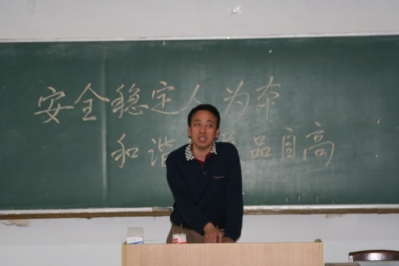 安全稳定人为本
和谐 品自高